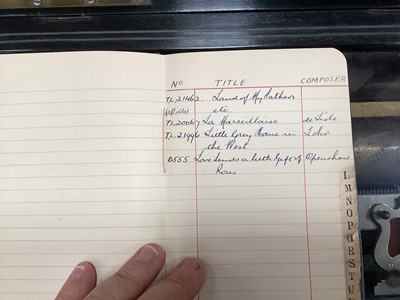 No TITLE COMPOSER
TL.21462 Land of My Fathers
etc
TL.22067 La Marseillaise de Lisle
TL.21996 Little Grey Home in Lohr
the West
0555 Love Sends a little Gift of Openshaw
Roses
L
M
N
O
P
Q
R
S
T
U